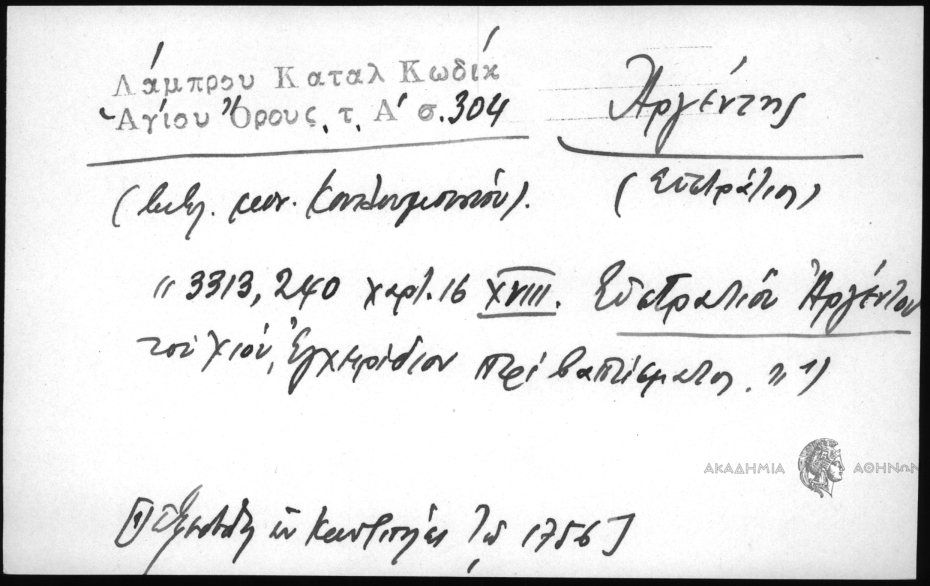 Λάμπρου Καταλ Κωδίκ
Ἁγίου Ὄρους, τ. Α' σ. 304
Ἀργέντης
(Εὐστράτιος)
(βιβλ. μον. Κουτλουμουσίου).
"3313, 240 χαρτ. 16 XVIII. Εὐστρατίου Ἀργέντου
τοῦ Χίου, Ἐγχειρίδιον περὶ βαπτίσματος." 1)
ΑΚΑΔΗΜΙΑ ΑΘΗΝΩΝ
[1) Ἐξεδόθη ἐν Κων/πόλει τῷ 1756]